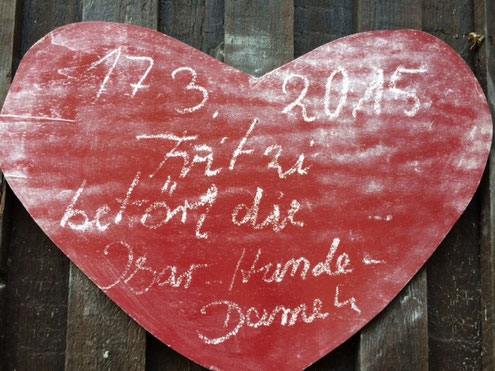 17 3. 2015
Fritzi
betört die
Isar-Hunde-
Damen